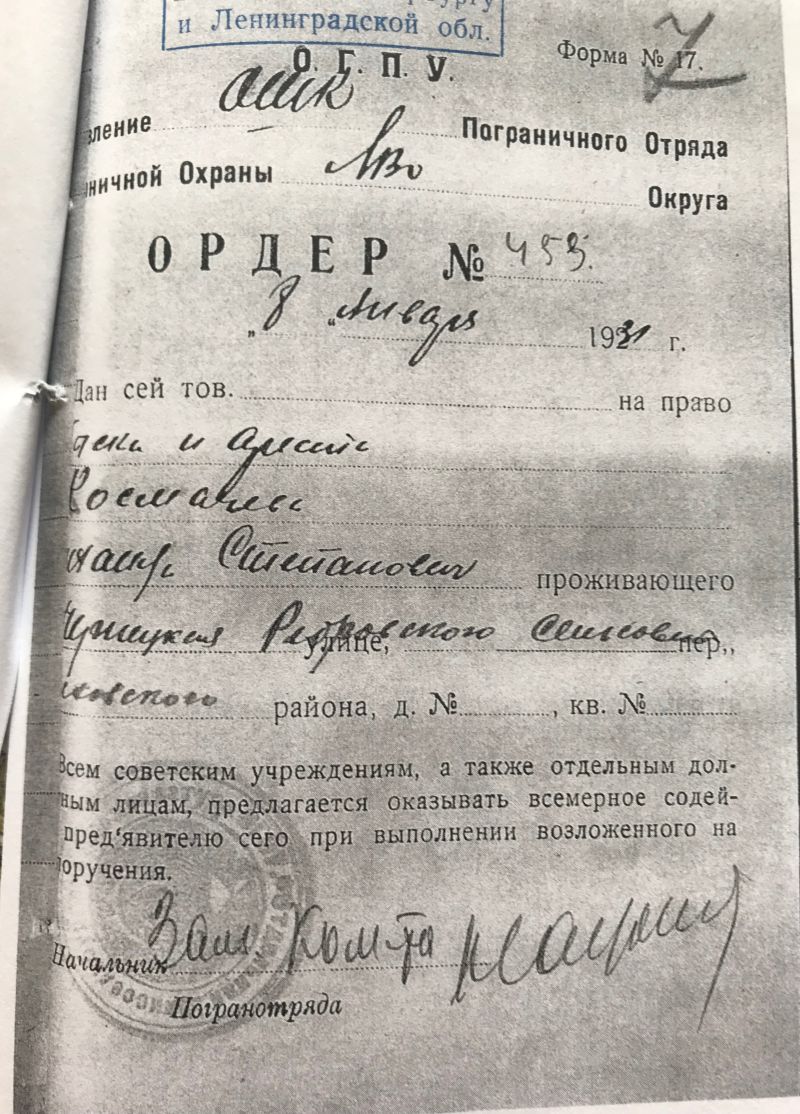 и Ленинградской обл.
Форма № 17.
7
О. Г. П. У.
вление Пограничного Отряда
ничной Охраны Лво Округа
ОРДЕР № 453.
„8“ января 1931 г.
Дан сей тов. на право
и ареста
Степанович проживающего
улице, пер.,
ковского района, д. № , кв. №
Всем советским учреждениям, а также отдельным дол-
ным лицам, предлагается оказывать всемерное содей-
пред'явителю сего при выполнении возложенного на
оручения.
Зам. Ком-та
Начальник
Погранотряда